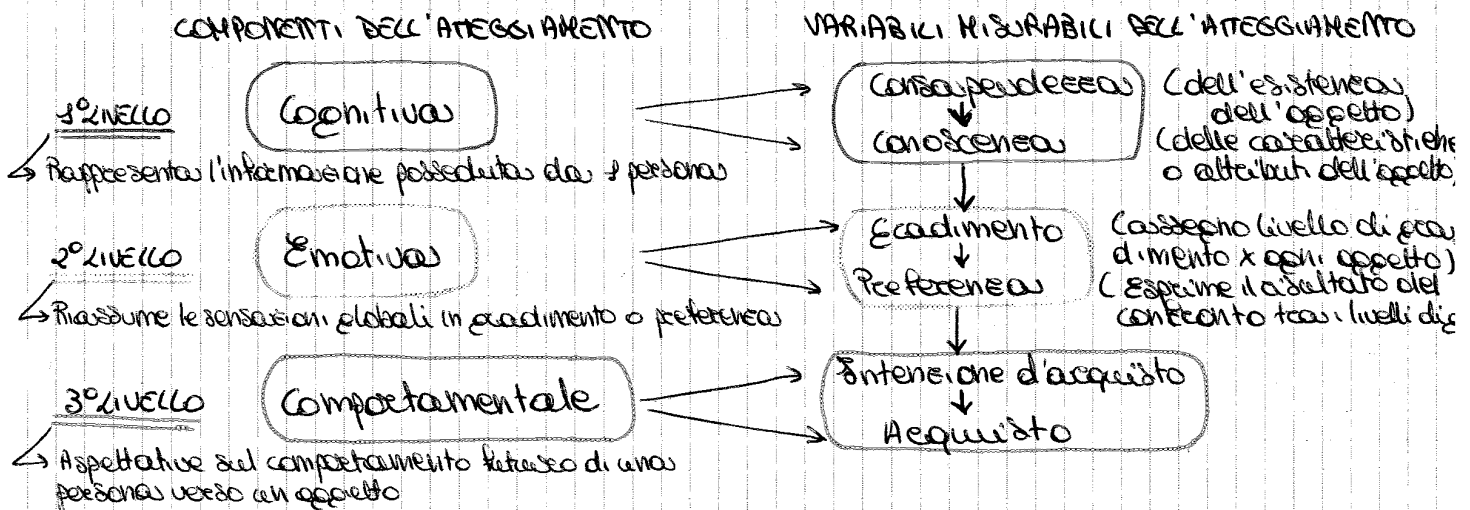 COMPONENTI DELL'ATTEGGIAMENTO
VARIABILI MISURABILI DELL'ATTEGGIAMENTO
1° LIVELLO
Cognitiva
Rappresenta l'informazione posseduta da 1 persona
Consapevolezza (dell'esistenza
dell'oggetto)
Conoscenza (delle caratteristiche
o attributi dell'oggetto)
2° LIVELLO
Emotiva
Riassume le sensazioni globali in gradimento o preferenza
Gradimento (assegno livello di gra
dimento x ogni oggetto)
Preferenza (Esprime il risultato del
confronto tra i livelli di g
3° LIVELLO
Comportamentale
Aspettative sul comportamento futuro di una
persona verso un oggetto
Intenzione d'acquisto
Acquisto